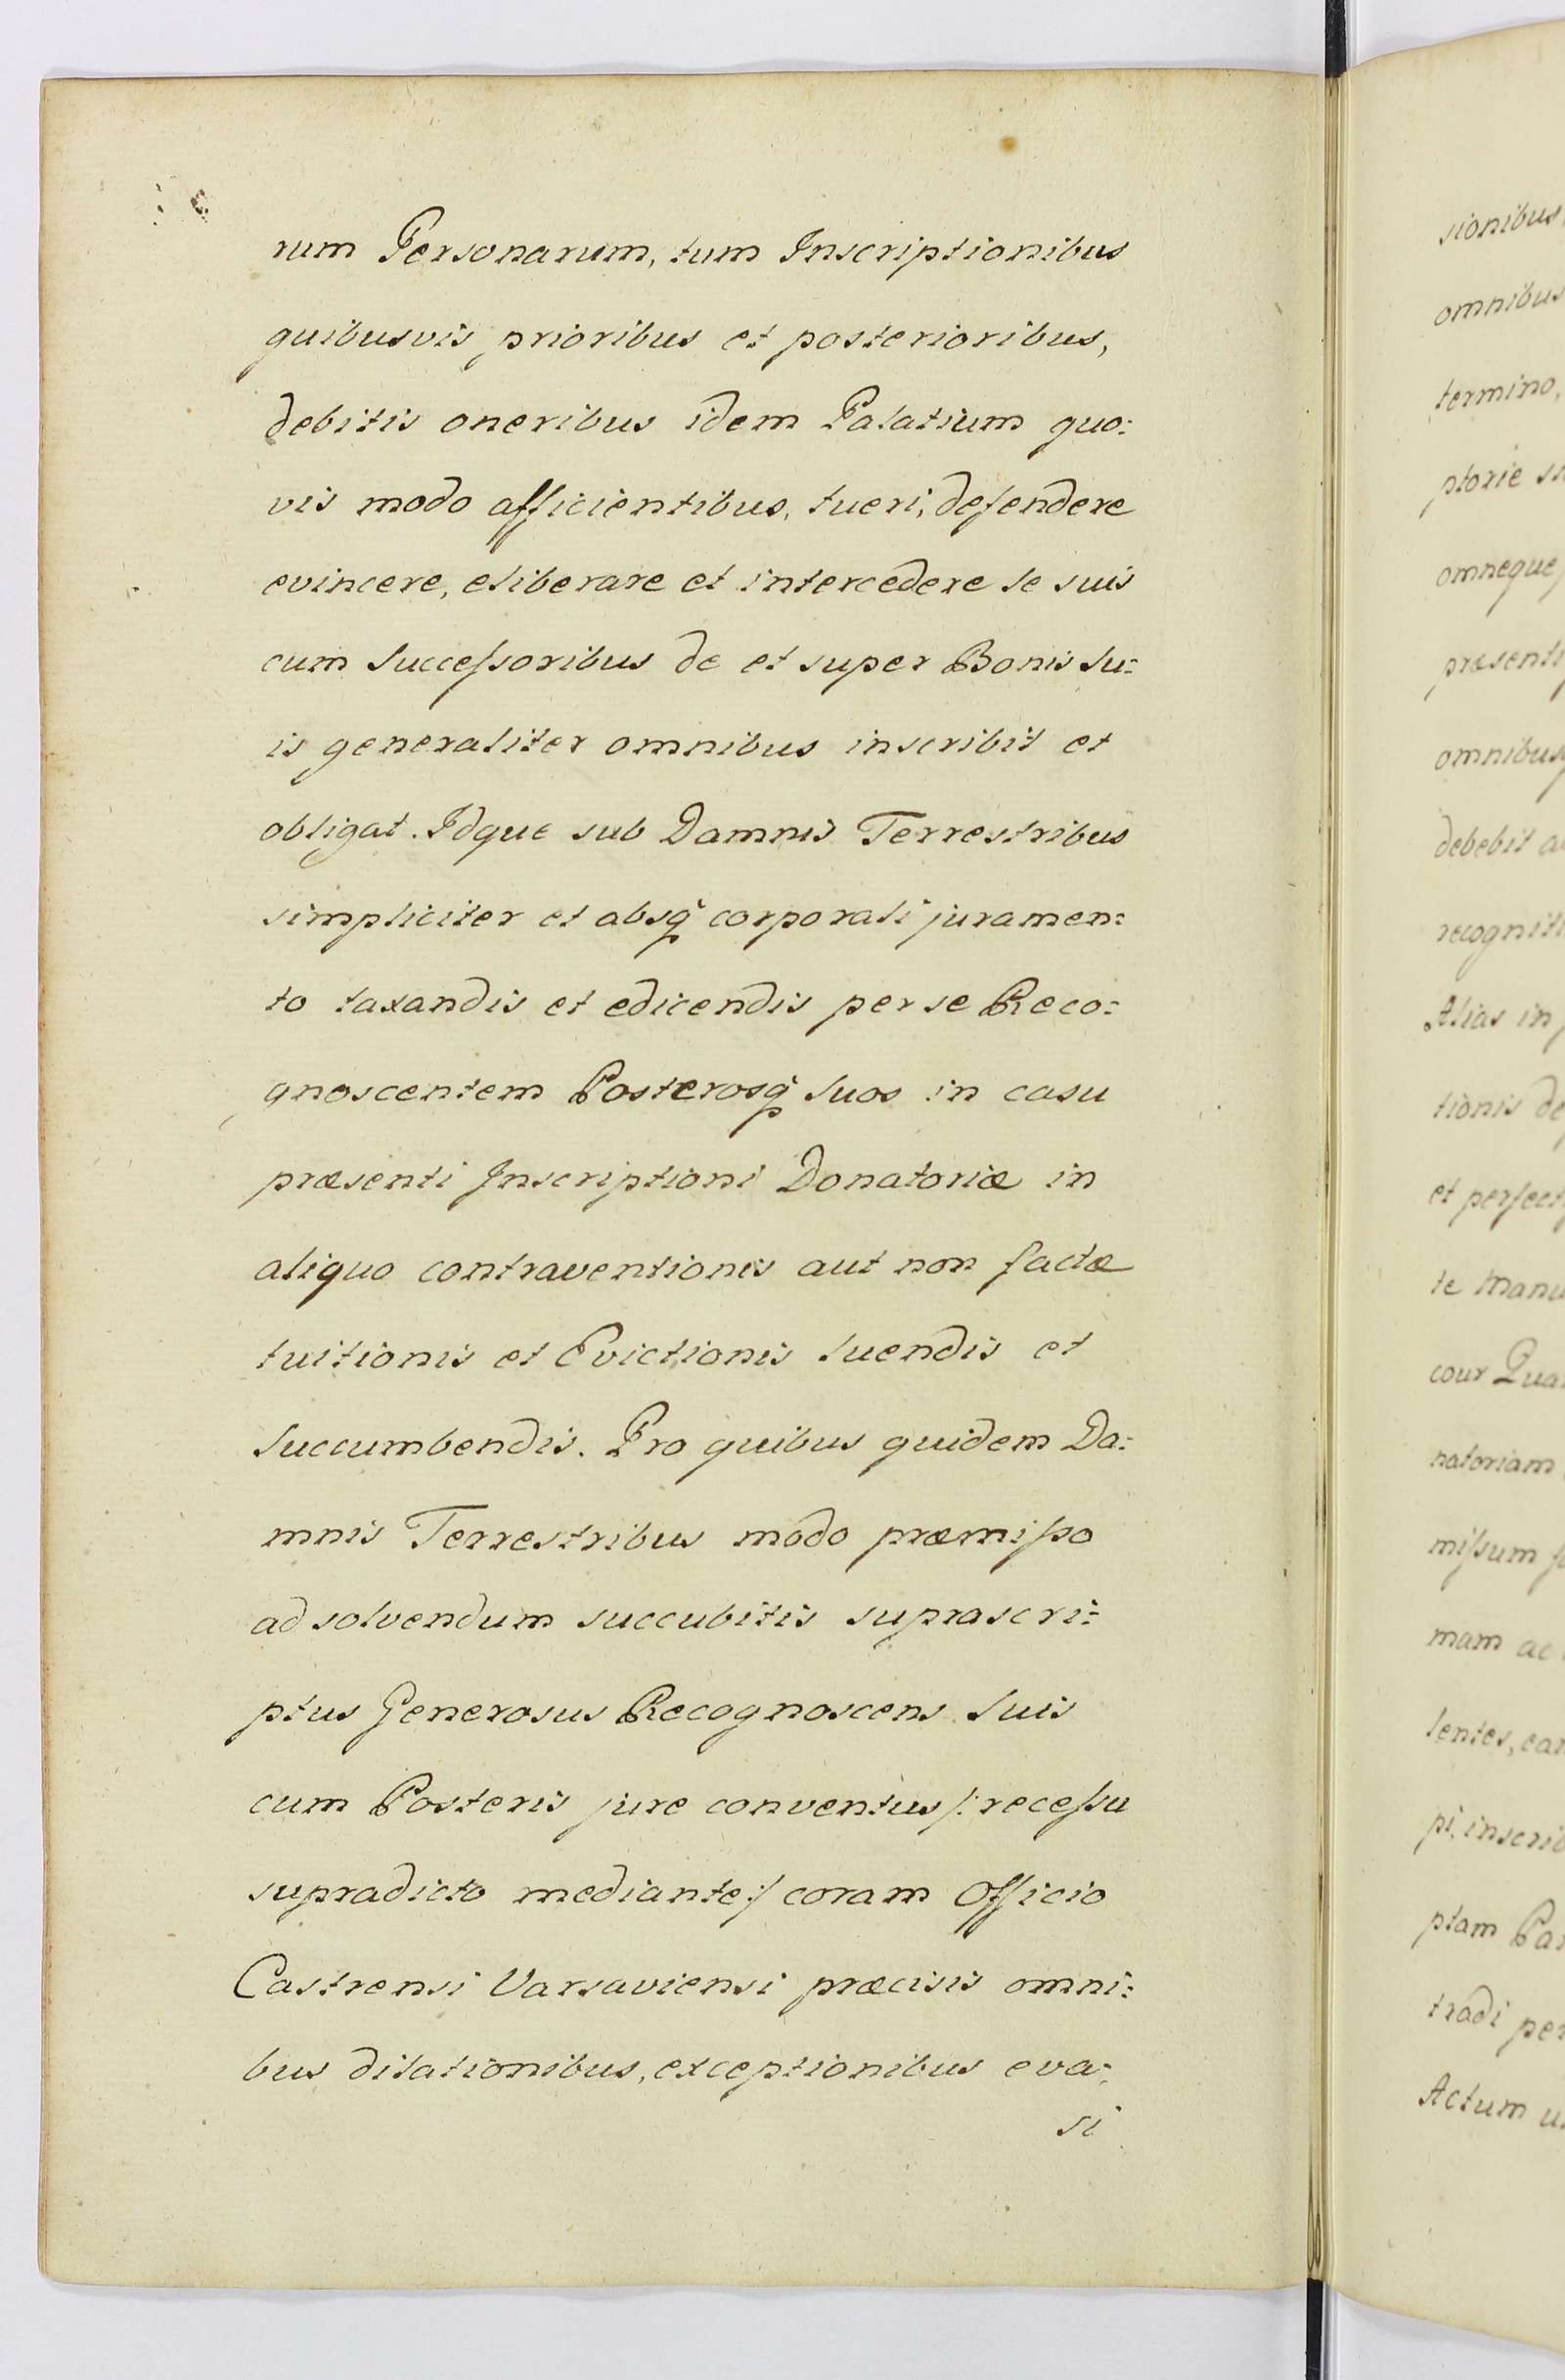 rum Personarum, tum Inscriptionibus
quibusvis prioribus et posterioribus,
debitis oneribus idem Palatium quo:
vis modo afficientibus, tueri, defendere
evincere, eliberare et intercedere se suis
cum Succeſsoribus de et super Bonis Su:
is generaliter omnibus inscribit et
obligat. Idque sub Damnis Terrestribus
simpliciter et absq̃ corporali juramen:
to taxandis et edicendis per se Reco:
gnoscentem Posterosq̃ Suos in casu
præsenti Inscriptioni Donatoriæ in
aliquo contraventionis aut non factæ
tuitionis et Evictionis luendis et
Succumbendis. Pro quibus quidem Da:
mnis Terrestribus modo præmiſso
ad solvendum succubitis suprascri:
ptus Generosus Recognoscens Suis
cum Posteris jure conventus /: receſsu
supradicto mediante :/ coram Officio
Castrensi Varsaviensi præcisis omni:
bus dilationibus, exceptionibus eva:
si
sionibus
omnibus
termino,
ptorie
omneque
præsenti
omnibus
debebit
recogniti
Alias in
tionis de
et perfect
te Manu
cour Qua
natoriam
miſsum
mam ac
lentes, ear
pi, inscrib
ptam Par
tradi per
Actum u